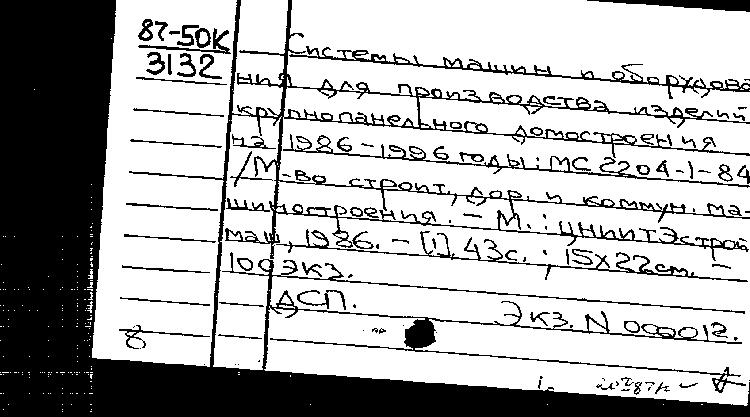 87-50К
3132
Системы машин и оборудова
ния для производства изделий
крупнопанельного домостроения
на 1986-1996 годы: МС 2204-1-84
/М-во строит., дор. и коммун. ма-
шиностроения. - М.: ЦНИИТЭстрой
маш, 1986. - [1], 43с.; 15х22см. -
100экз.
ДСП.
Экз. N 000012.
8